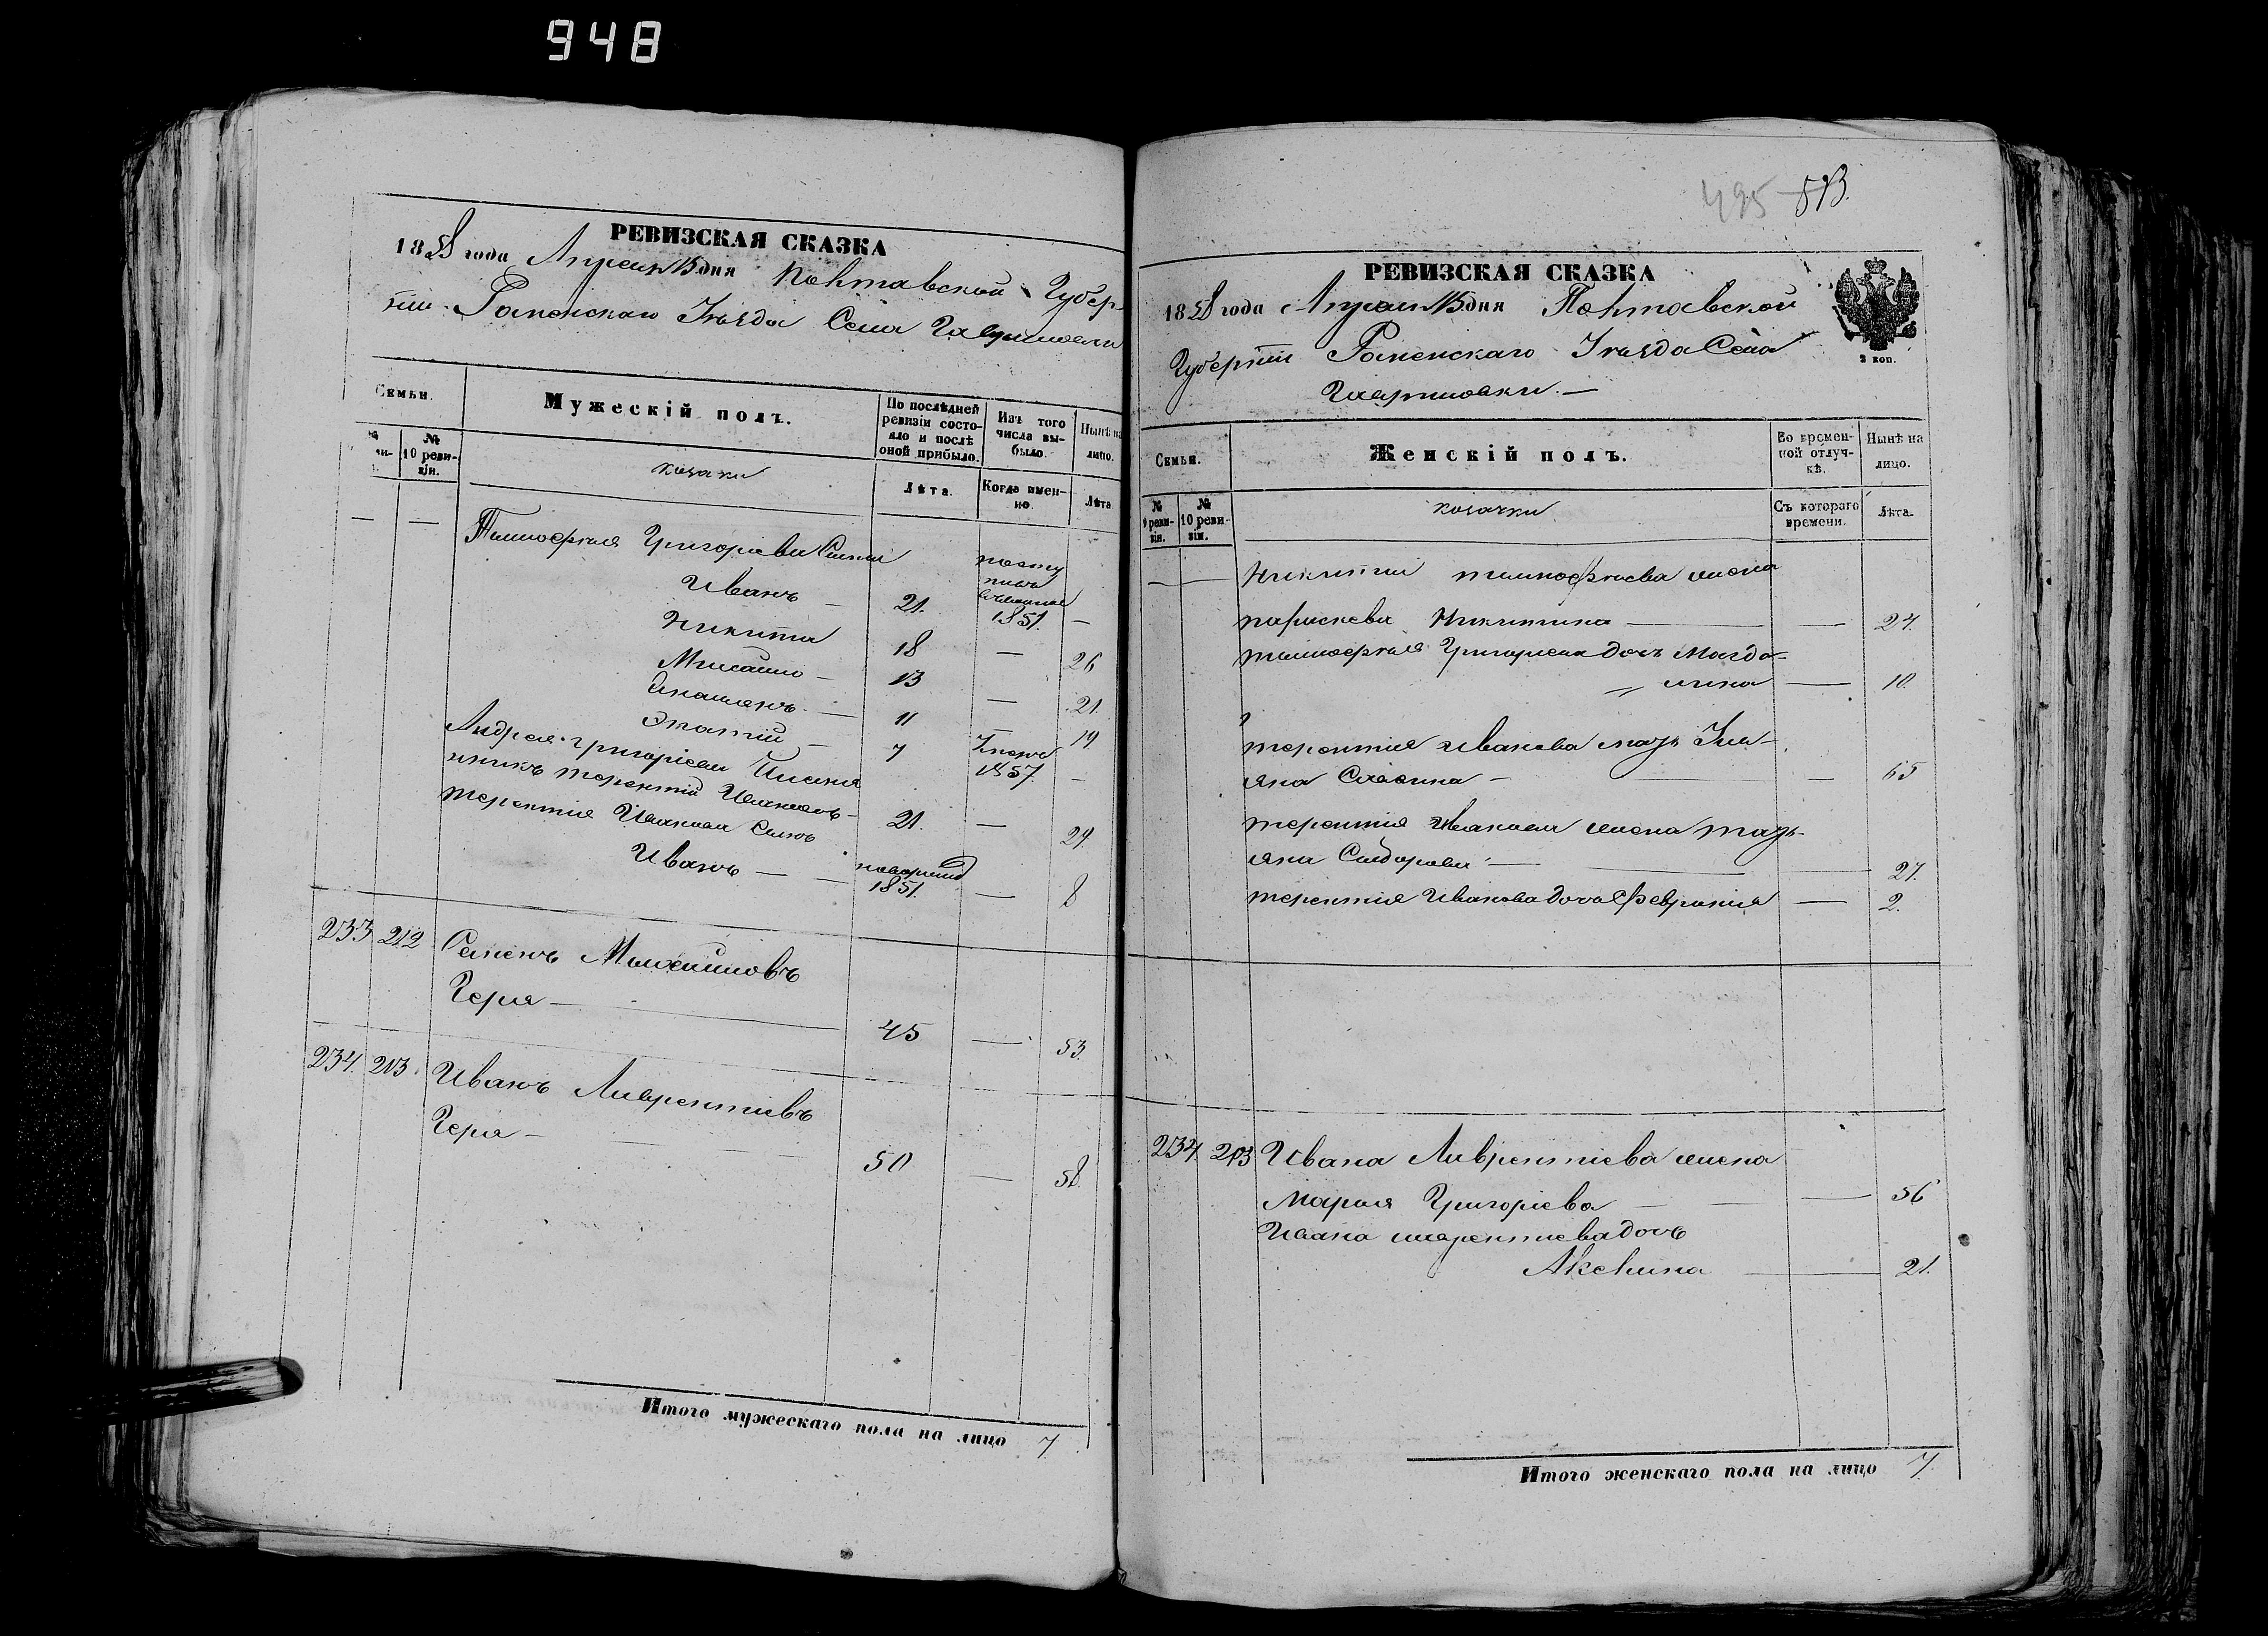 948
РЕВИЗСКАЯ СКАЗКА
1858 года Апреля 15 дня Полтавской Губер-
ніи Роменскаго Уѣзда Села Гавришовки
Семьи.
Мужескій полъ.
По послѣдней ревизіи состояло и послѣ оной прибыло.
Изъ того числа выбыло.
Нынѣ на лицо.
№
№ 10 ревизіи.
козаки
Лѣта.
Когда именно.
Лѣта
— — Тимофѣя Григорієва Сыны
Иванъ — 21. посту
пилъ
1851. —
Никита 18 — 26
Михайло — 13 — 21.
— 11 — 19
Игнатій — 7 1857. —
Андрея Григоріева
Терентій Ивановъ — 21. — 29
Терентія Иванова Сынъ
Иванъ — — 1851. — 8
233 212 Семенъ Михайловъ
Геря — 45 — 53.
234. 213. Иванъ Лаврентіевъ
Геря — 50 — 58.
Итого мужескаго пола на лицо 7
495 513.
РЕВИЗСКАЯ СКАЗКА
1858 года Апреля 15 дня Полтавской
Губерніи Роменскаго Уѣзда Села
Гавришовки. —
2 коп.
Семьи.
Женскій полъ.
Во временной отлучкѣ.
Нынѣ на лицо.
№ 9 ревизіи.
№ 10 ревизіи.
козачки
Съ котораго времени.
Лѣта.
— — Никиты Тимофѣева жена
Парискева Никитина — — 24.
Тимофѣя Григорієва дочь Магда-
лина — 10.
Терентія Иванова мать Уль-
яна Саввина — — 65
Терентія Иванова жена Тать-
яна Сидорова — — 27.
Терентія Иванова дочь Февронія — 2.
234. 213 Ивана Лаврентіева жена
Марія Григорієва — — 56
Ивана Лаврентіева дочь
Акелина — 21.
Итого женскаго пола на лицо 7.